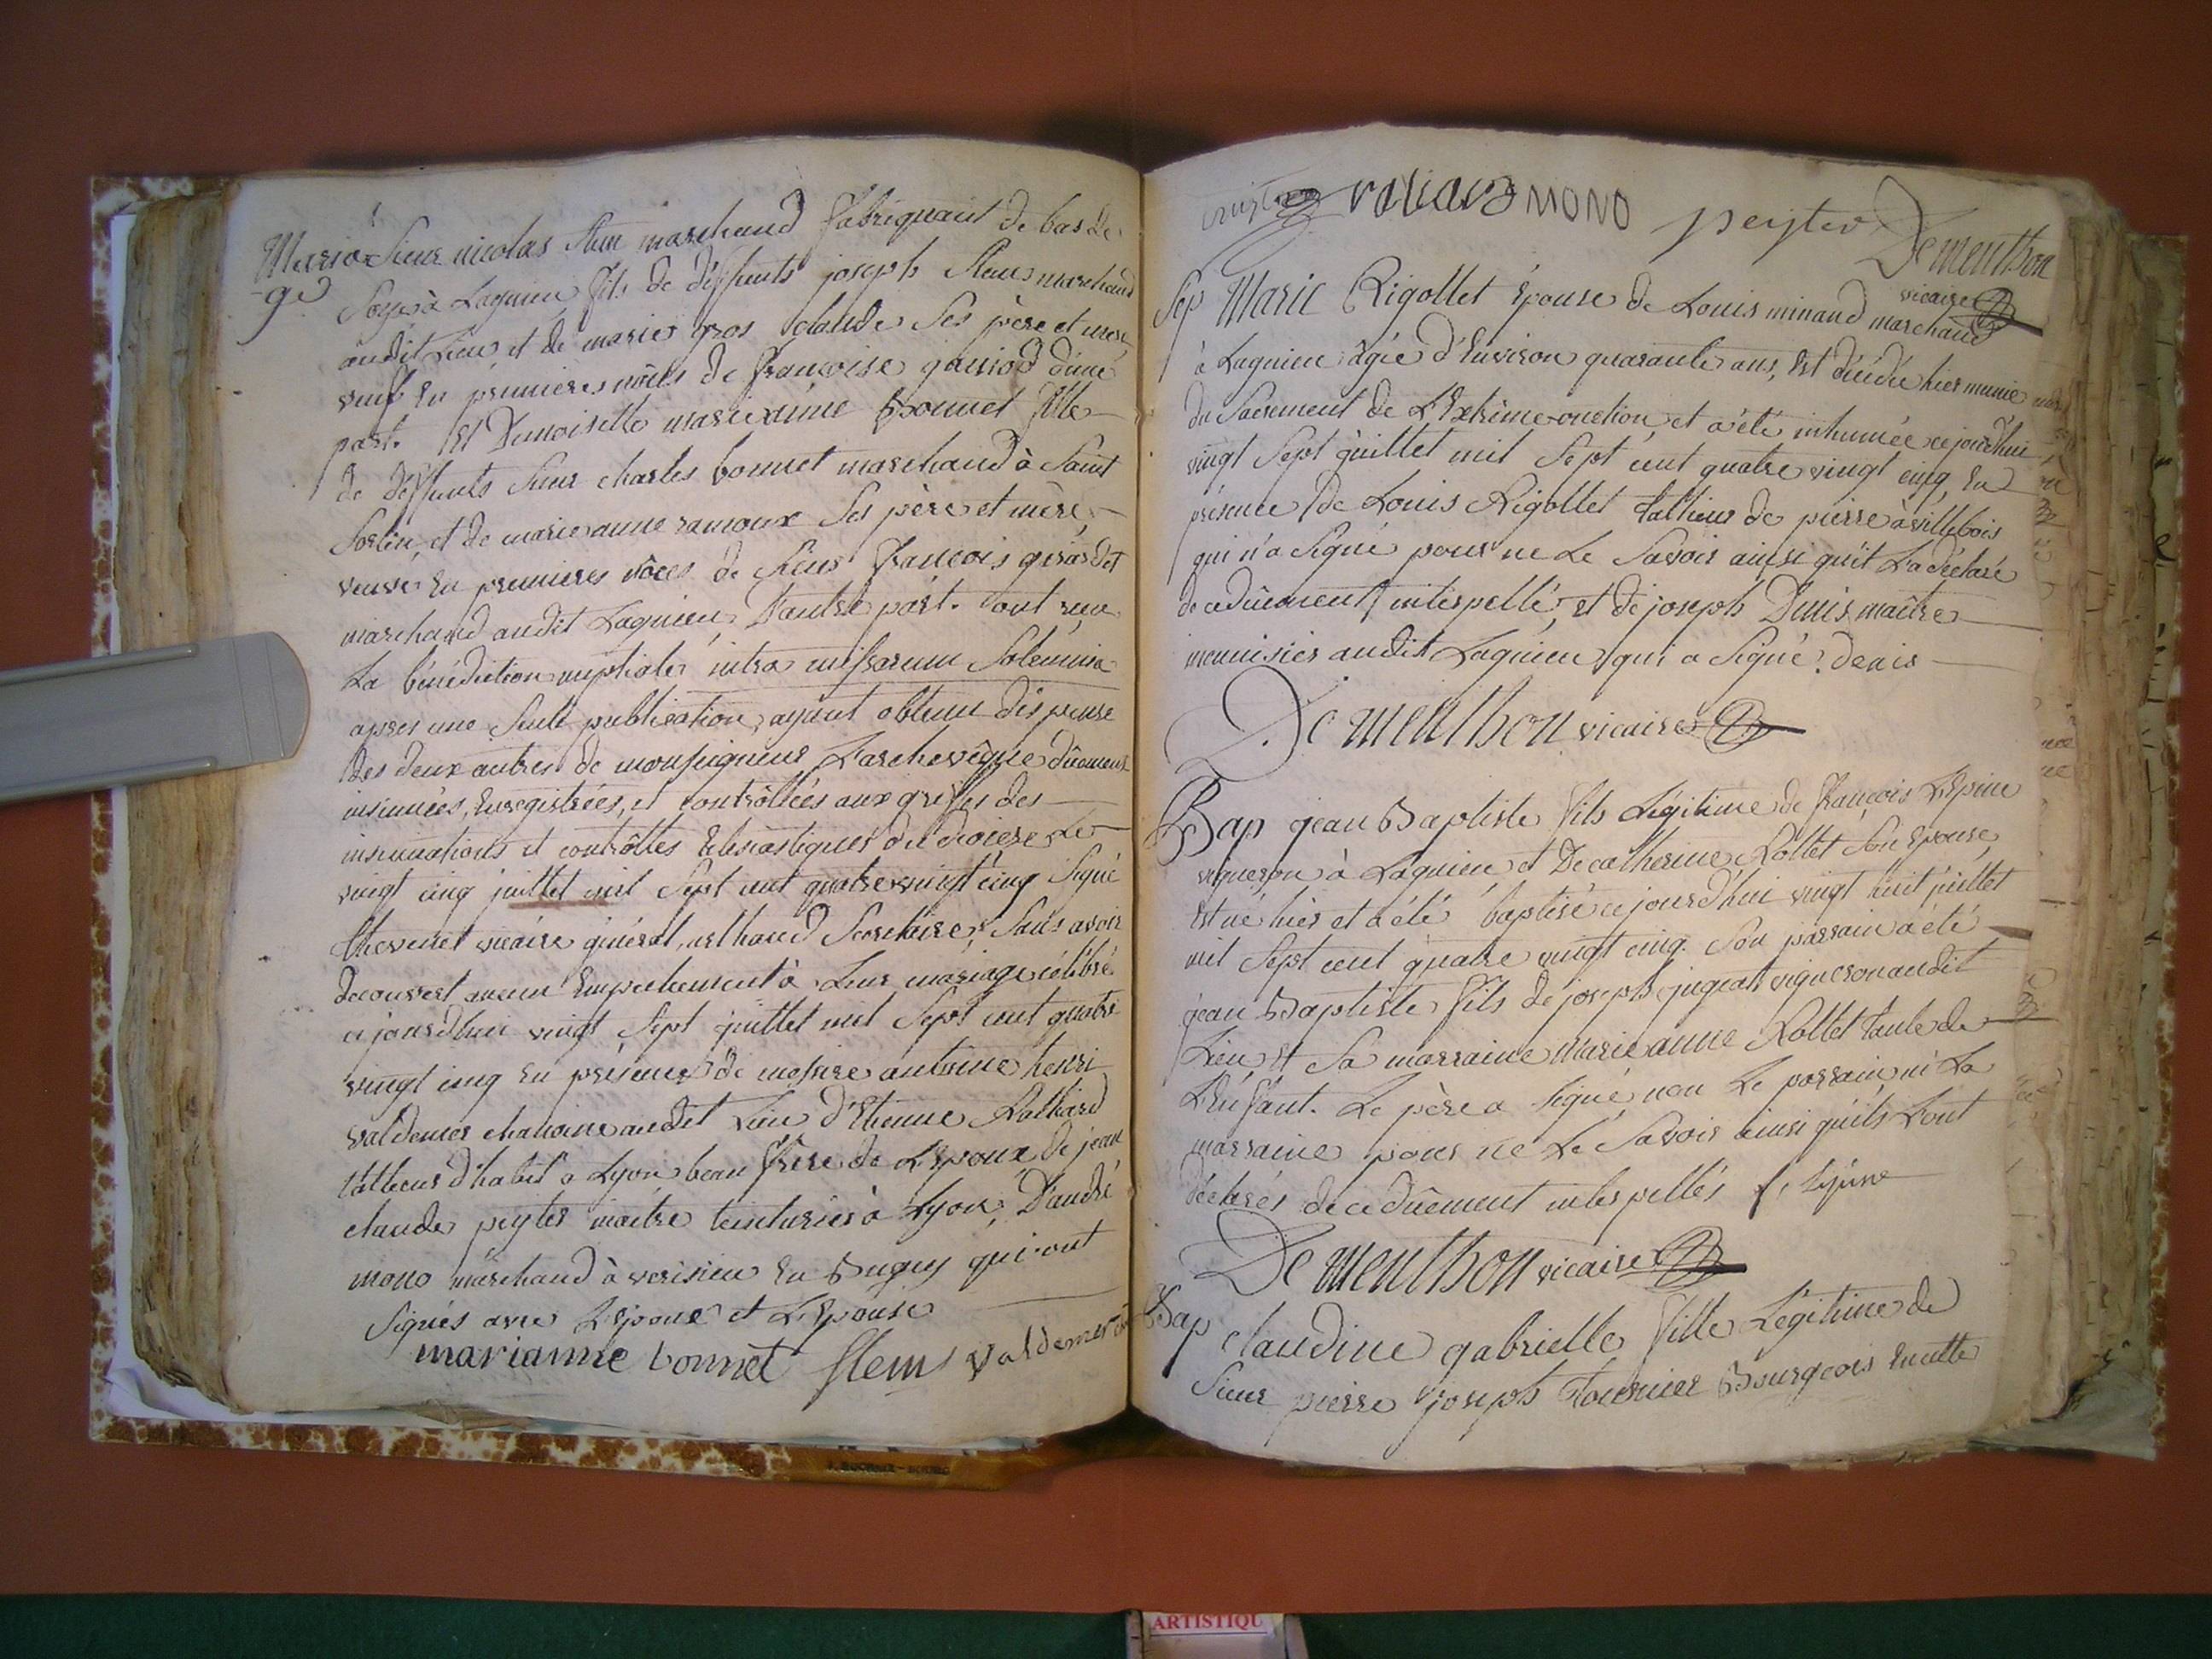 Maria-
-ge
Sieur nicolas Stem marchand fabriquant de bas de
Soye à Lagnieu fils de deffunts joseph Stem marchand
audit Lieu et de marie gros claude Ses père et mere
veuf En premieres nôces de francoise d'une
part. Et Demoiselle marieaime Bonnet fille
de deffunts Sieur charles bonnet marchand à Saint
Sorlin, et de marieanne ramoux Ses père et mère,
veuve En premieres nôces de Sieur françois girardet
marchand audit Lagnieu D'autre part. ont reçu
La bénédiction nuptiale intra missarum Solemnia
apres une Seule publication, ayant obtenu dispense
des deux autres de monseigneur L'archevêque dûement
insinuées, Enregistrées, et contrôllées aux greffes des
insinuations et contrôlles Eclesiastiques du dioiese Le
vingt cinq juillet mil Sept cent quatre vingt cinq Signé
thevenet vicaire général, Secretaire, Sans avoir
decouvert aucun Empechement à Leur mariage célébré
cejourd'hui vingt Sept juillet mil Sept cent quatre
vingt cinq En presence de messire antoine henri
valdemer chanoine audit Lieu d'Etienne
tallieur d'habit a Lyon beau frere de L'Epoux de jean
claude peyter maitre teinturier à Lyon, D'andre
mono marchand à verisieu En Bugey qui ont
Signés avec L'Epoux et L'Epouse
marianne bonnet Stem valdemer
mono peyter De menthon
vicaire
Sep Marie Rigollet Epouse de Louis minand marchand
à Lagnieu âgée d'Environ quarante ans, Est décédée hier munie
du Sacrement de L'Extrême-onction, et a été inhumée cejourd'hui
vingt Sept juillet mil Sept cent quatre vingt cinq En
présence de Louis Rigollet tallieur de pierre à villebois
qui n'a Signé pour ne Le Savoir ainsi qu'il L'a déclaré
de ce dûement interpellé, et de joseph Denis maître
menuisier audit Lagnieu qui a Signé. denis
De menthon vicaire
Bap jean Baptiste fils Légitime de françois L'Epine
vigneron à Lagnieu et De catherine Rollet Son Epouse,
Est né hier et a été baptisé cejourd'hui vingt huit juillet
mil Sept cent quatre vingt cinq. Son parrain a été
jean Baptiste fils de joseph jugeat vigneron audit
Lieu et Sa marraine marieanne Rollet tante de
L'Enfant. Le père a Signé non Le parrain ni La
marraine pour ne Le Savoir ainsi qu'ils L'ont
déclarés de ce dûement interpellés f. Lépine
De menthon vicaire
Bap claudine gabrielle fille Légitime de
Sieur pierre joseph Tournier Bourgeois En cette
ARTISTIQU